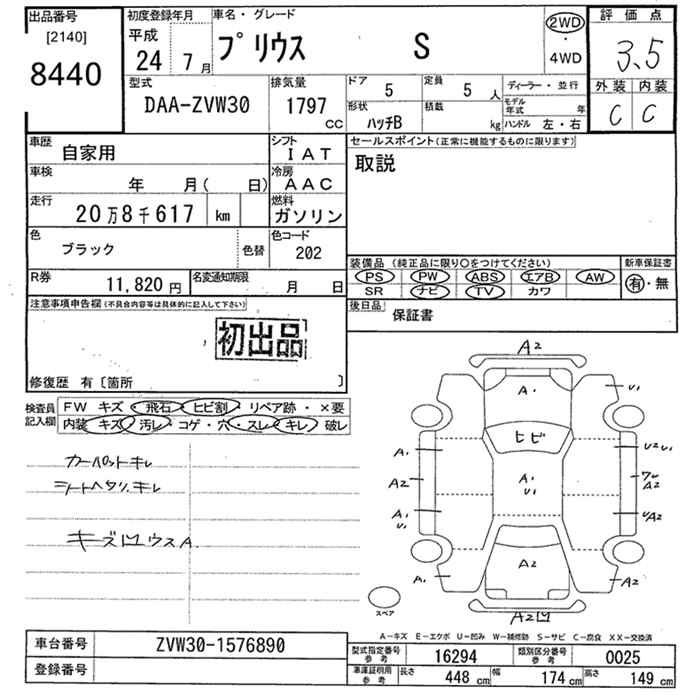 出品番号
[2140]
8440
初度登録年月
平成
24 7月
車名・グレード
プリウス S
2WD
・
4WD
評価点
3.5
外装 内装
C C
型式
DAA-ZVW30
排気量
1797
CC
ドア
5
定員
5 人
形状
ハッチB
積載
kg
ディーラー・並行
モデル
年式 年
ハンドル 左・右
車歴
自家用
シフト
IAT
車検
年 月( 日)
冷房
AAC
走行
20万8千617 km
燃料
ガソリン
色
ブラック
色替
色コード
202
R券
11,820円
名変通知期限
月 日
セールスポイント(正常に機能するものに限ります)
取説
装備品(純正品に限り○をつけてください)
PS PW ABS エアB AW
SR ナビ TV カワ
新車保証書
有・無
後日品
保証書
注意事項申告欄(不具合内容等は具体的に記入して下さい)
初出品
修復歴 有〔箇所 〕
検査員
記入欄
FW キズ・飛石・ヒビ割・リペア跡・×要
内装 キズ・汚レ・コゲ・穴・スレ・キレ・破レ
カーペットキレ
シートヘタリ、キレ
キズ凹ウスA.
A2
A・
U1
ヒビ
A1
U2 U1
A2
A1
U1
ワU
A2
A1
U1
UA2
A2
A1
A2
A2凹
スペア
A-キズ E-エクボ U-凹み W-補修跡 S-サビ C-腐食 XX-交換済
車台番号
ZVW30-1576890
登録番号
型式指定番号
参考
16294
類別区分番号
参考
0025
車庫証明用
参考
長さ
448 cm
幅
174 cm
高さ
149 cm